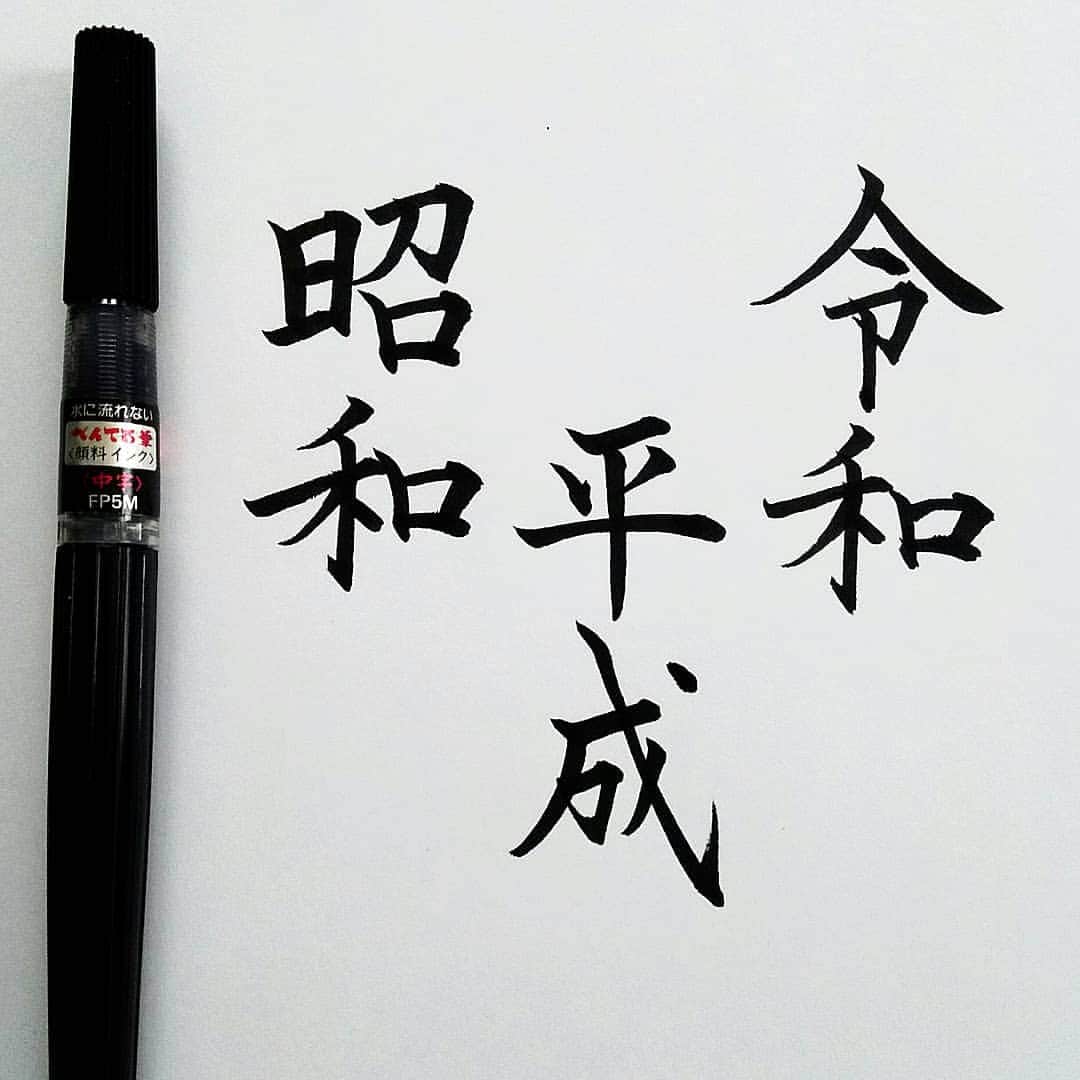 令和
平成
昭和
水に流れない
ぺんてる筆
〈顔料インク〉
〈中字〉
FP5M